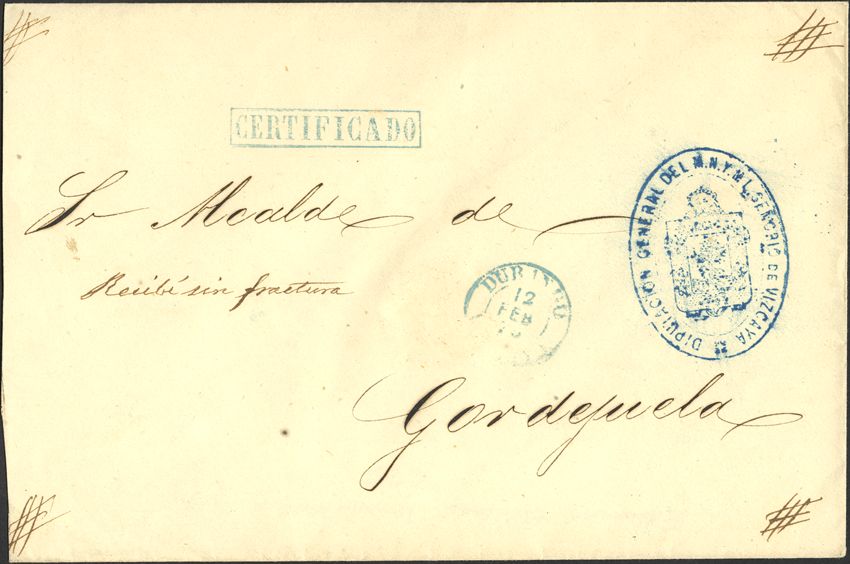 CERTIFICADO
Sr Alcalde de
DIPUTACION GENERAL DEL M.N.Y M.L. SEÑORIO DE VIZCAYA
Recibí sin fractura
DURANGO
12
FEB
Gordejuela